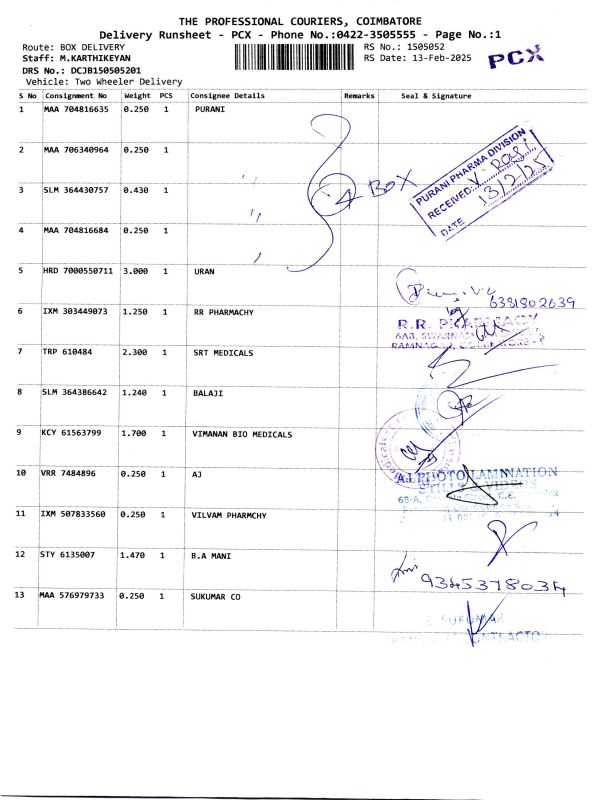 THE PROFESSIONAL COURIERS, COIMBATORE
Delivery Runsheet - PCX - Phone No.:0422-3505555 - Page No.:1
Route: BOX DELIVERY RS No.: 1505052
Staff: M.KARTHIKEYAN RS Date: 13-Feb-2025
DRS No.: DCJB150505201
Vehicle: Two Wheeler Delivery
PCX
S No Consignment No Weight PCS Consignee Details Remarks Seal & Signature
1 MAA 704816635 0.250 1 PURANI
2 MAA 706340964 0.250 1
3 SLM 364430757 0.430 1
4 MAA 704816684 0.250 1
4 BOX
PURANI PHARMA DIVISION
RECEIVED
13/2/25
DATE
5 HRD 7000550711 3.000 1 URAN
6381802639
6 IXM 303449073 1.250 1 RR PHARMACHY
R.R. PHARMACY
7 TRP 610484 2.300 1 SRT MEDICALS
8 SLM 364386642 1.240 1 BALAJI
9 KCY 61563799 1.700 1 VIMANAN BIO MEDICALS
10 VRR 7484896 0.250 1 AJ
AJ PHOTO LAMINATION
11 IXM 507833560 0.250 1 VILVAM PHARMCHY
12 STY 6135007 1.470 1 B.A MANI
9345378034
13 MAA 576979733 0.250 1 SUKUMAR CO